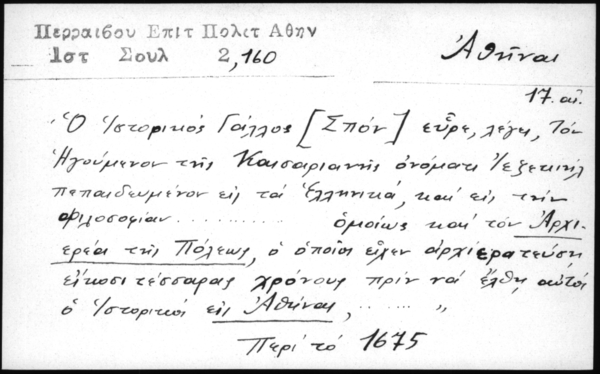 Περραιβου Επιτ Πολιτ Αθην
1στ Σουλ 2,160
Ἀθῆναι
17. αἰ.
"Ὁ Ἱστορικός Γάλλος [Σπόν] εὗρε, λέγει, τόν
Ἡγούμενον τῆς Καισαριανῆς ὀνόματι Ἰεζεκιήλ
πεπαιδευμένον εἰς τά Ἑλληνικά, καί εἰς τήν
φιλοσοφίαν .......... ὁμοίως καί τόν Ἀρχι-
ερέα τῆς Πόλεως, ὁ ὁποῖος εἶχεν ἀρχιερατεύση
εἴκοσι τέσσαρας χρόνους πρίν νά ἔλθῃ αὐτός
ὁ Ἱστορικός εἰς Ἀθήνας, ...... "
Περί τό 1675